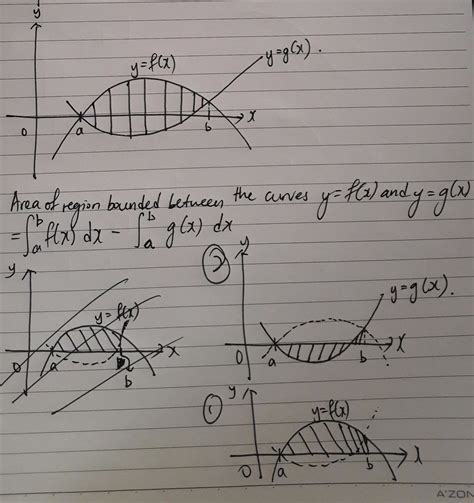 y
y=f(x)
y=g(x).
0 a b x
Area of region bounded between the curves y=f(x) and y=g(x)
=∫ₐᵇ f(x) dx - ∫ₐᵇ g(x) dx
y
y=f(x)
0 a b x
②
y
y=g(x).
0 a b x
①
y
y=f(x)
0 a b x
A'ZON